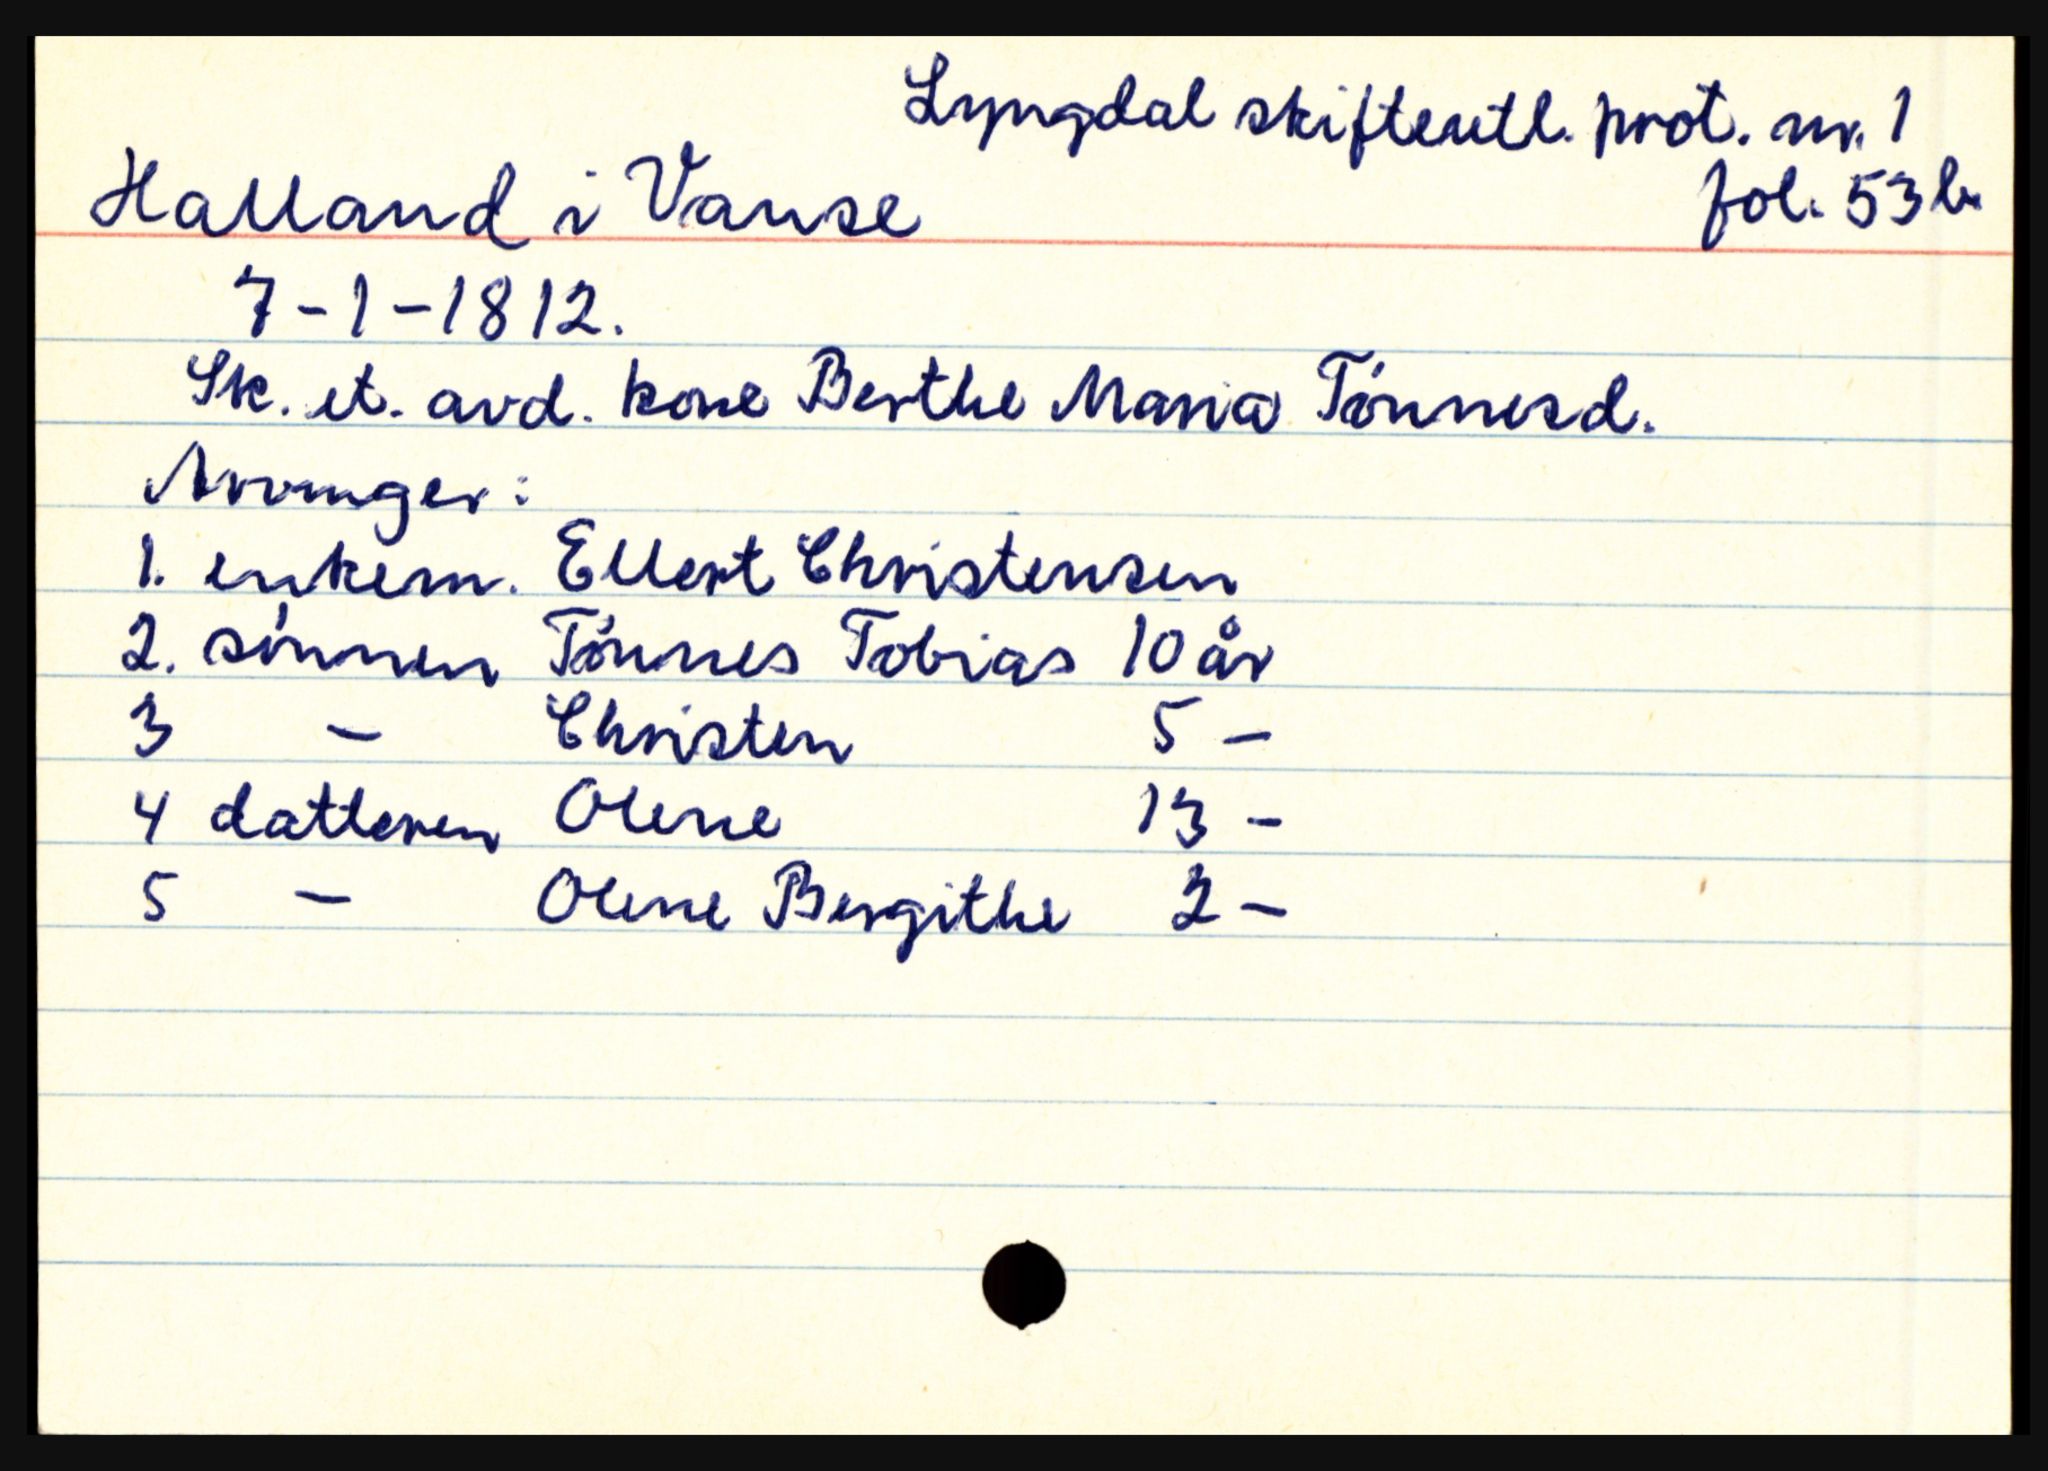 Lyngdal skifteutl. prot. nr. 1
Halland i Vanse fol. 53 b.
7-1-1812.
Sk. et. avd. kone Berthe Maria Tønnesd.
Arvinger:
1. enkem. Ellert Christensen
2. sønnen Tønnes Tobias 10 år
3 - Christen 5 -
4 datteren Olene 13 -
5 - Olene Bergithe 2 -